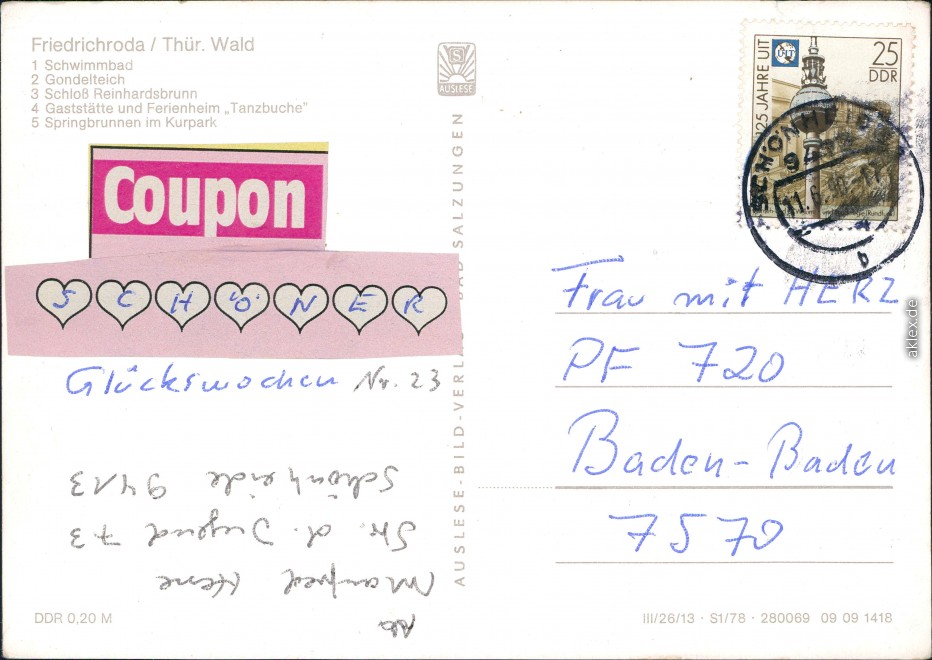 Friedrichroda / Thür. Wald
1 Schwimmbad
2 Gondelteich
3 Schloß Reinhardsbrunn
4 Gaststätte und Ferienheim „Tanzbuche"
5 Springbrunnen im Kurpark
Coupon
SCHÖNER
Glückswochen Nr. 23
Manfred
Str. d. Jugend 73
Schönheide 9413
DDR 0,20 M
AUSLESE
AUSLESE-BILD-VERLAG BAD SALZUNGEN
125 JAHRE UIT
25
DDR
SCHÖNHEIDE
b
Frau mit HERZ
PF 720
Baden-Baden
7570
III/26/13 · S1/78 · 280069 09 09 1418
aklex.de